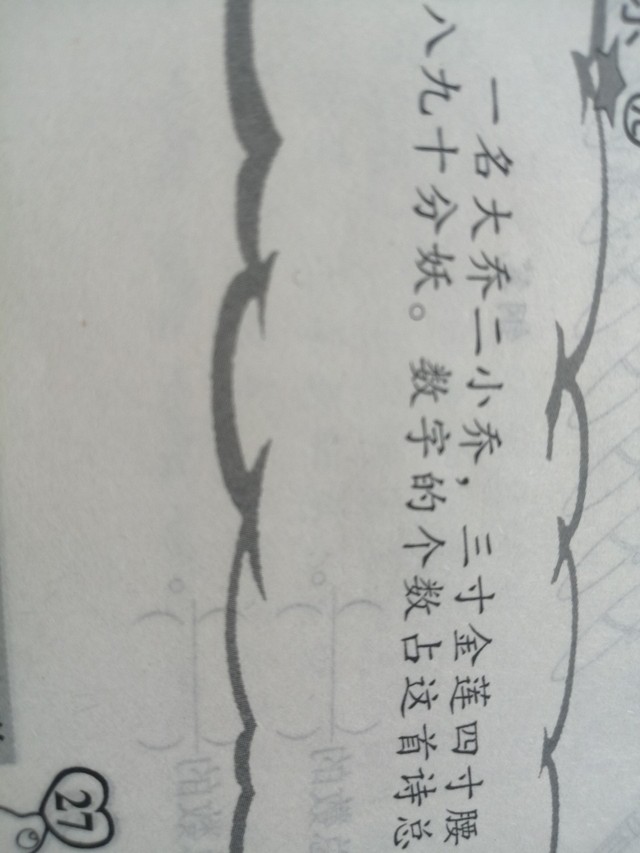 一名大乔二小乔，三寸金莲四寸腰
八九十分妖。数字的个数占这首诗总
27